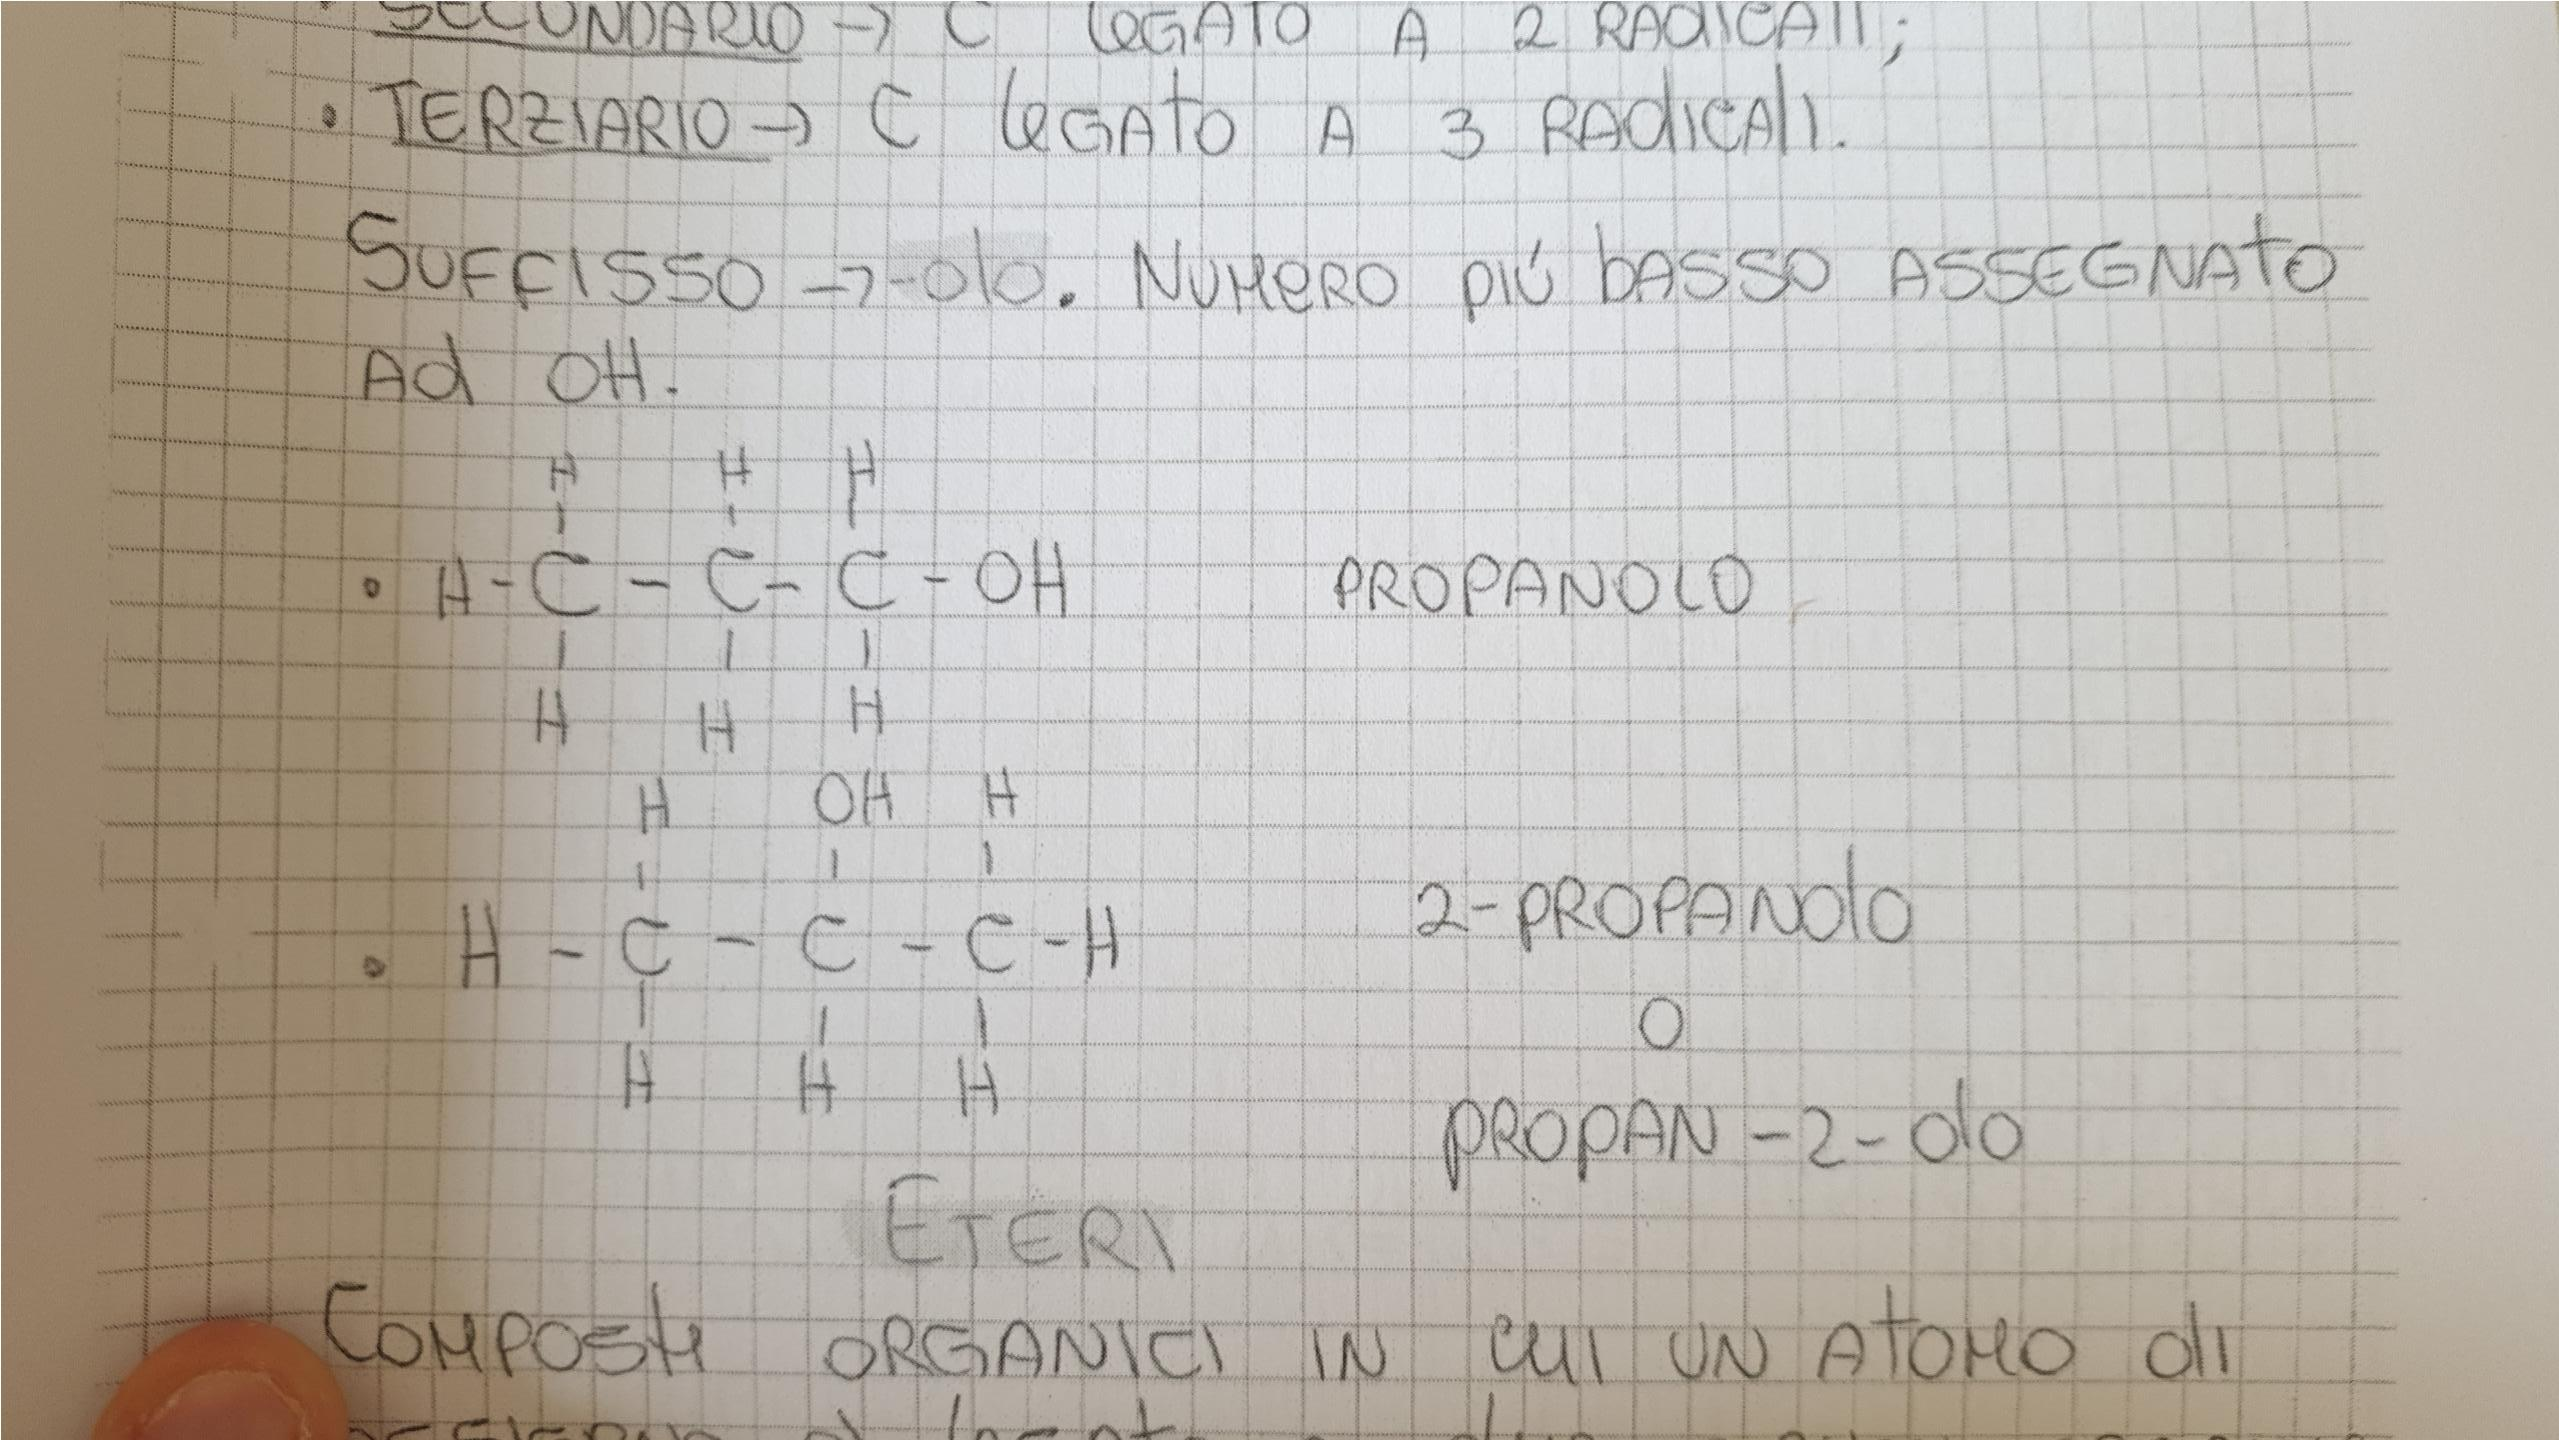 • SECONDARIO → C legato A 2 RADICALI;
• TERZIARIO → C legato A 3 RADICALI.
SUFFISSO → -olo. NUMERO più basso ASSEGNATO
Ad OH.
H H H
• H - C - C - C - OH PROPANOLO
H H H
H OH H
2-PROPANOLO
• H - C - C - C - H
O
H H H
PROPAN-2-olo
ETERI
COMPOSTI ORGANICI IN CUI UN ATOMO di